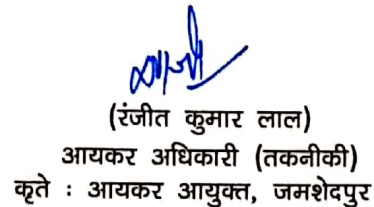 (रंजीत कुमार लाल)
आयकर अधिकारी (तकनीकी)
कृते : आयकर आयुक्त, जमशेदपुर